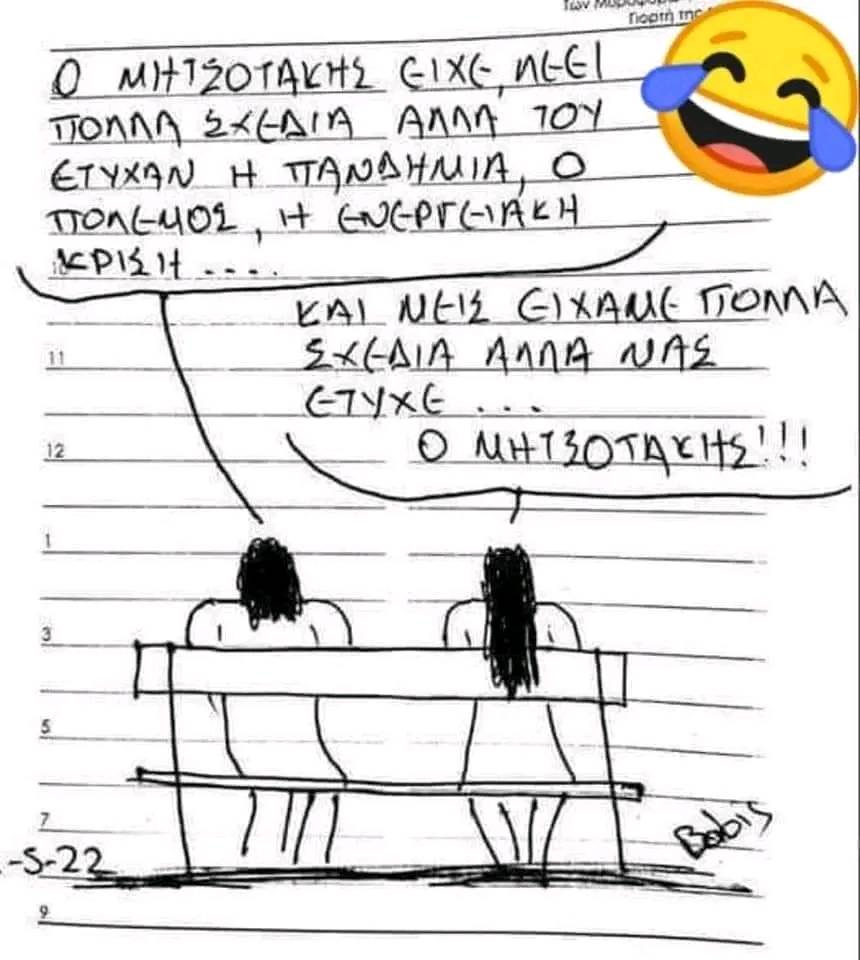 Των Μυροφόρ
Γιορτή της
Ο ΜΗΤΣΟΤΑΚΗΣ ΕΙΧΕ, ΛΕΕΙ
ΠΟΛΛΑ ΣΧΕΔΙΑ ΑΛΛΑ ΤΟΥ
ΕΤΥΧΑΝ Η ΠΑΝΔΗΜΙΑ, Ο
ΠΟΛΕΜΟΣ, Η ΕΝΕΡΓΕΙΑΚΗ
ΚΡΙΣΗ ....
ΚΑΙ ΜΕΙΣ ΕΙΧΑΜΕ ΠΟΛΛΑ
ΣΧΕΔΙΑ ΑΛΛΑ ΜΑΣ
ΕΤΥΧΕ ...
Ο ΜΗΤΣΟΤΑΚΗΣ!!!
11
12
1
3
5
7
Bobis
-5-22
9